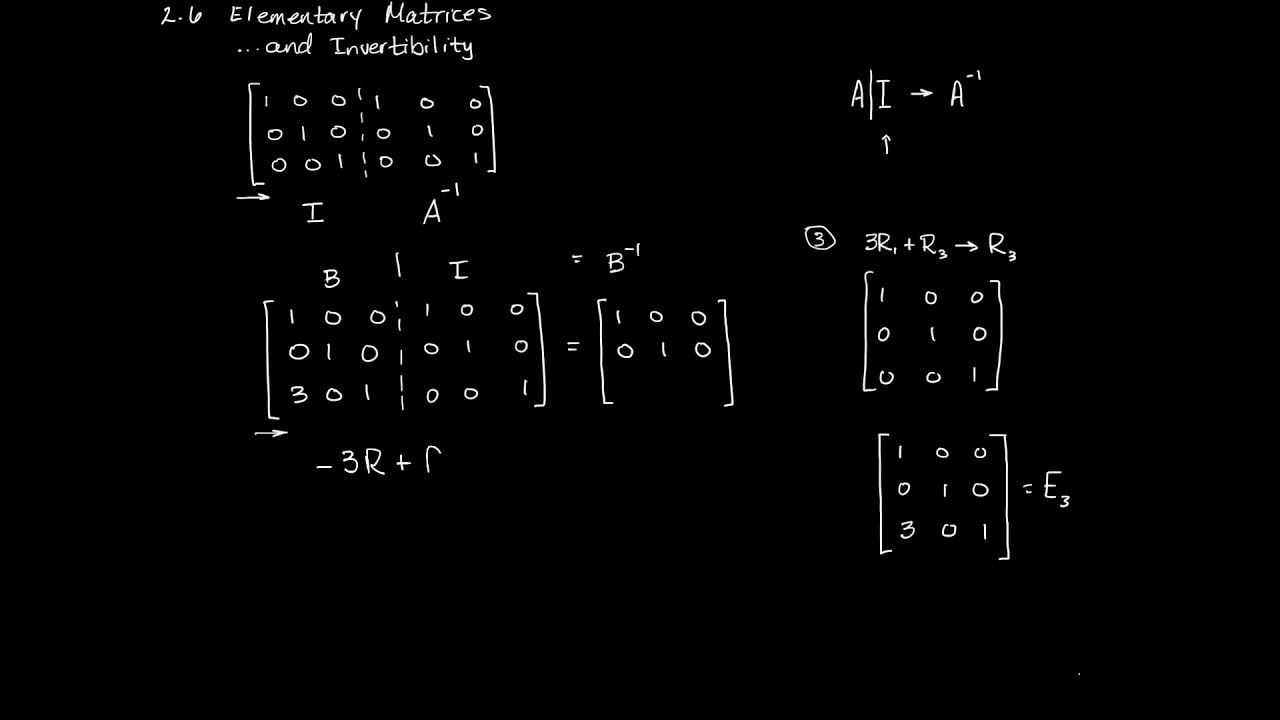 2.6 Elementary Matrices
...and Invertibility
[ 1 0 0 ¦ 1 0 0 ]
[ 0 1 0 ¦ 0 1 0 ]
[ 0 0 1 ¦ 0 0 1 ]
→ I A⁻¹
B | I = B⁻¹
[ 1 0 0 ¦ 1 0 0 ] = [ 1 0 0 ]
[ 0 1 0 ¦ 0 1 0 ] [ 0 1 0 ]
[ 3 0 1 ¦ 0 0 1 ]
→ -3R +
A|I → A⁻¹
↑
③ 3R₁ + R₃ → R₃
[ 1 0 0 ]
[ 0 1 0 ]
[ 0 0 1 ]
[ 1 0 0 ]
[ 0 1 0 ] = E₃
[ 3 0 1 ]